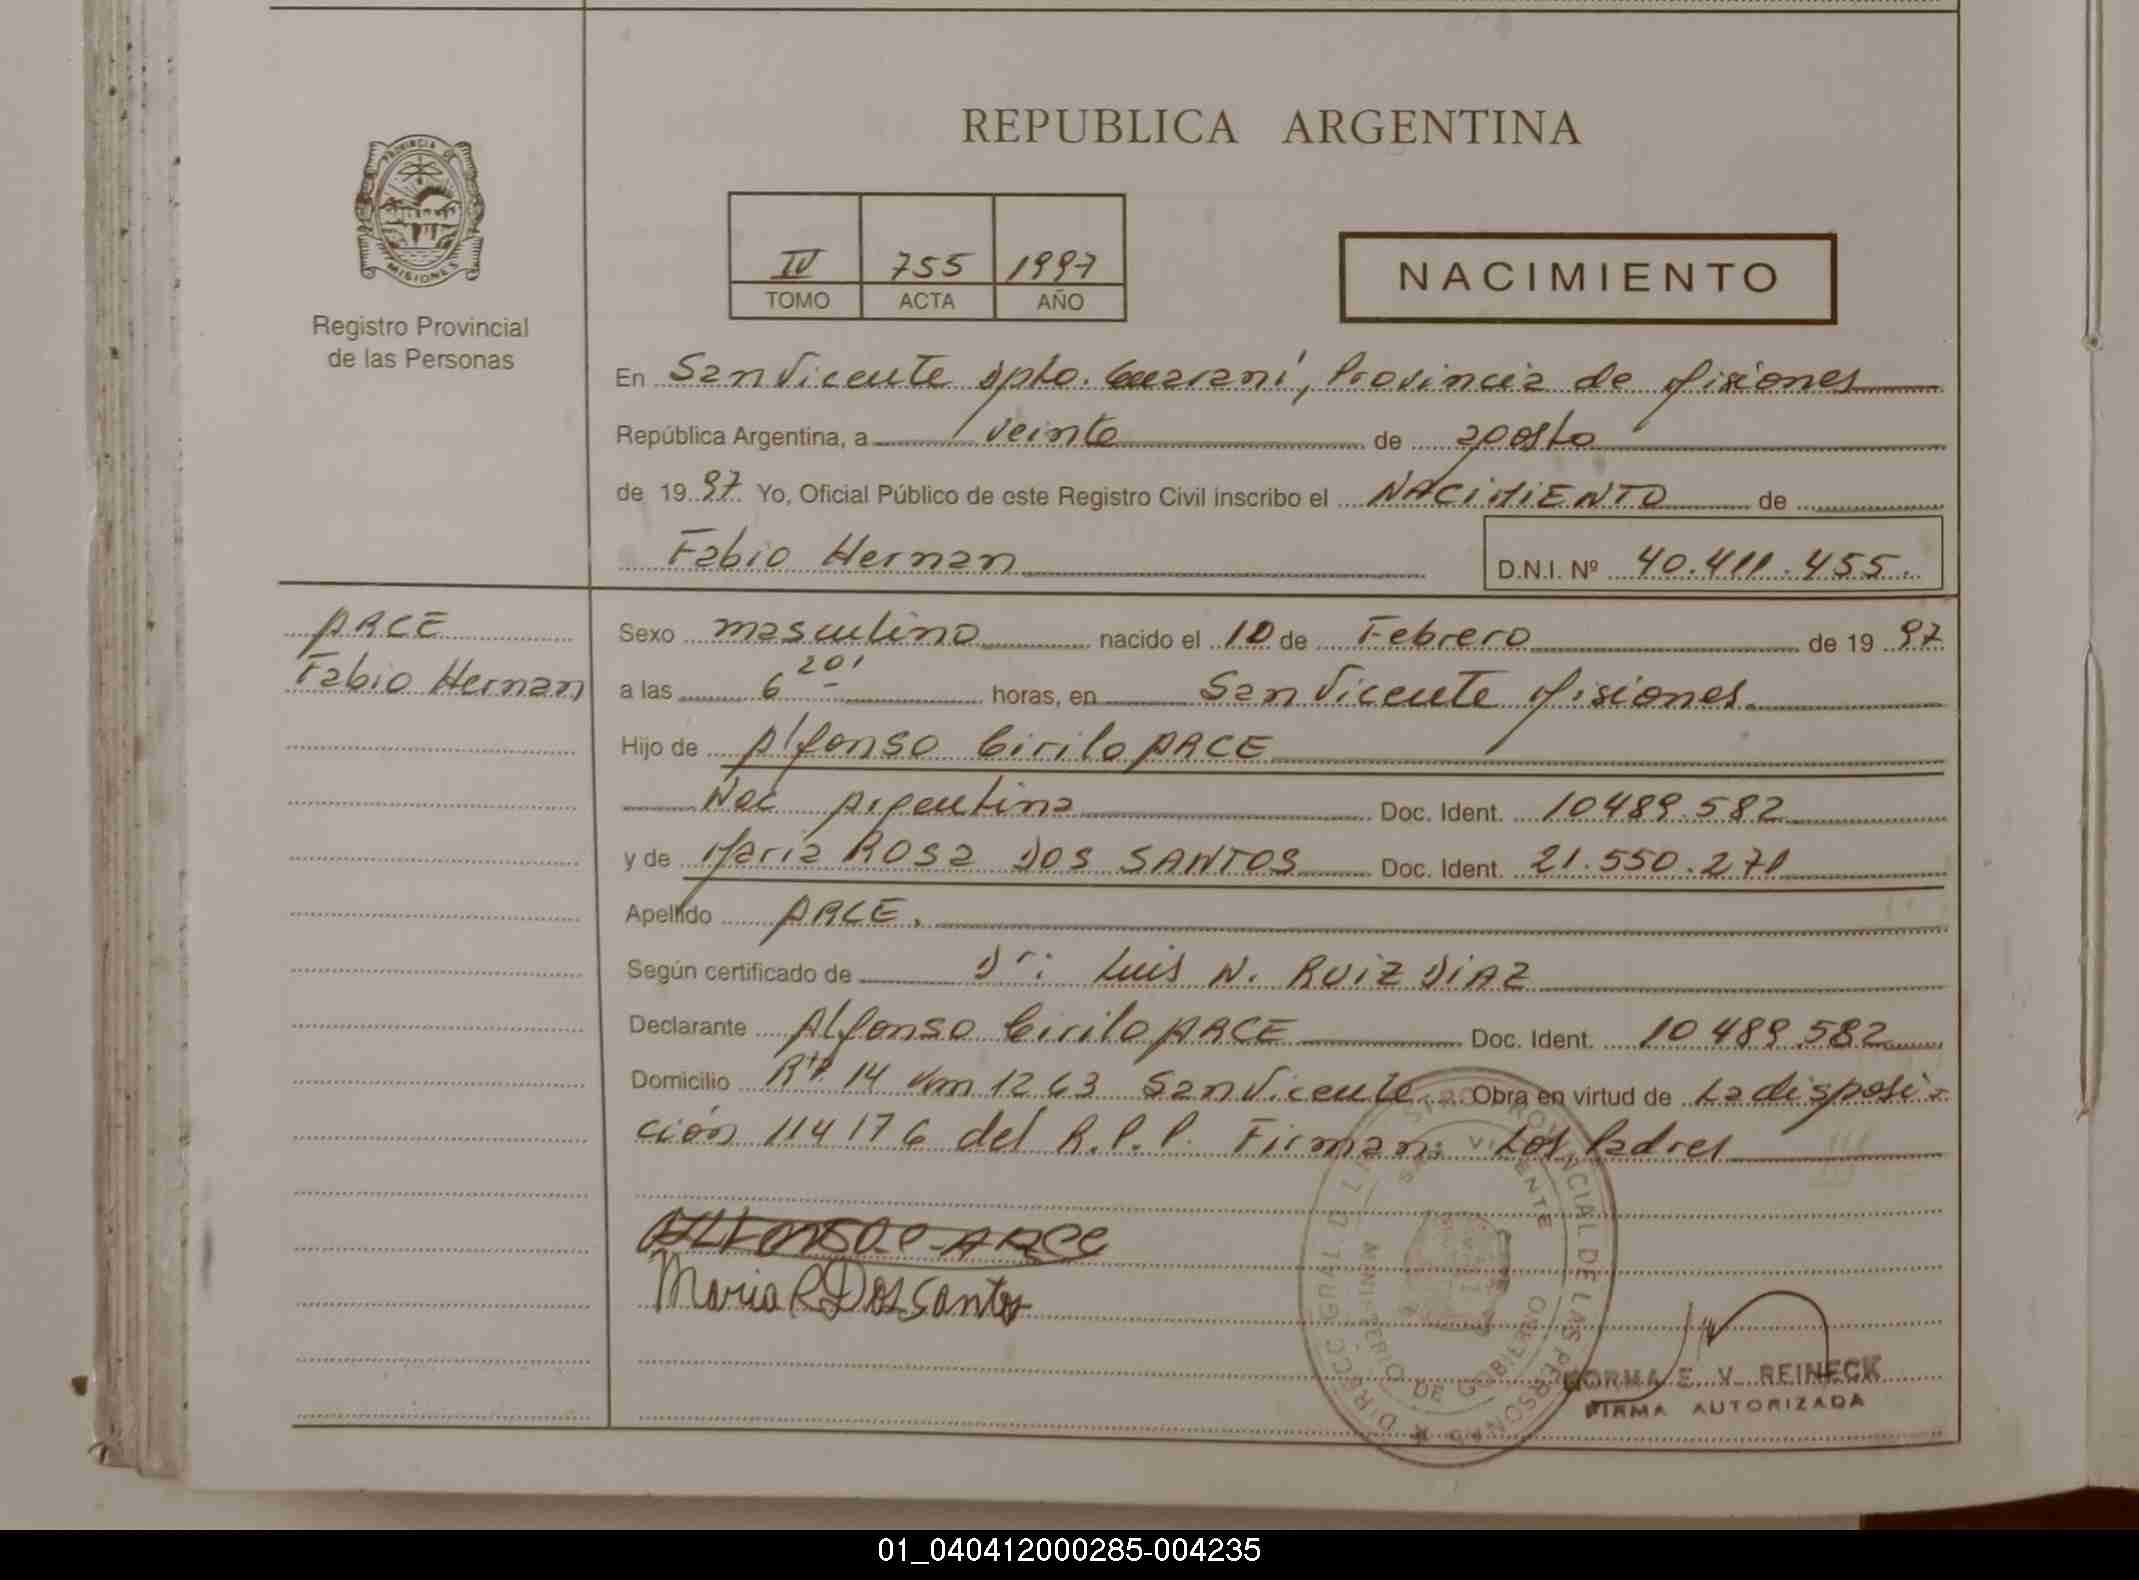 REPUBLICA ARGENTINA
PROVINCIA DE
MISIONES
Registro Provincial
de las Personas
IV 755 1997
TOMO ACTA AÑO
NACIMIENTO
En San Vicente Dpto. Guaraní, Provincia de Misiones
República Argentina, a veinte de agosto
de 19 97 Yo, Oficial Público de este Registro Civil inscribo el NACIMIENTO de
Fabio Hernan D.N.I. Nº 40.411.455.
ARCE
Fabio Hernan
Sexo masculino nacido el 10 de Febrero de 19 97
a las 6 20' horas, en San Vicente Misiones.
Hijo de Alfonso Cirilo ARCE
Nac Argentina Doc. Ident. 10489.582
y de Maria Rosa DOS SANTOS Doc. Ident. 21.550.271
Apellido ARCE.
Según certificado de Dr: Luis N. RUIZ DIAZ
Declarante Alfonso Cirilo ARCE Doc. Ident. 10489.582
Domicilio Rta 14 Km 1263 San Vicente Obra en virtud de La disposi-
ción 114176 del R.P.P. Firman: Los Padres
ALFONSO C ARCE
Maria R Dos Santos
DIRECC GRAL DEL REGISTRO PROVINCIAL DE LAS PERSONAS
SAN VICENTE
MINISTERIO DE GOBIERNO
NORMA E. V. REINECK
FIRMA AUTORIZADA
01_040412000285-004235